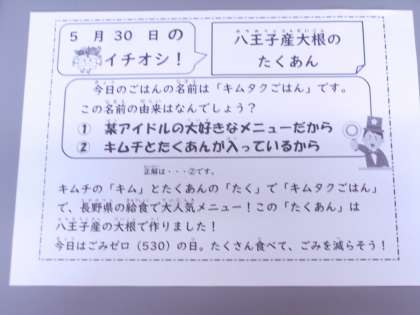 5月30日の
イチオシ！
八王子産大根の
たくあん
今日のごはんの名前は「キムタクごはん」です。
この名前の由来はなんでしょう？
① 某アイドルの大好きなメニューだから
② キムチとたくあんが入っているから
正解は・・・②です。
キムチの「キム」とたくあんの「たく」で「キムタクごはん」
で、長野県の給食で大人気メニュー！この「たくあん」は
八王子産の大根で作りました！
今日はごみゼロ（530）の日。たくさん食べて、ごみを減らそう！